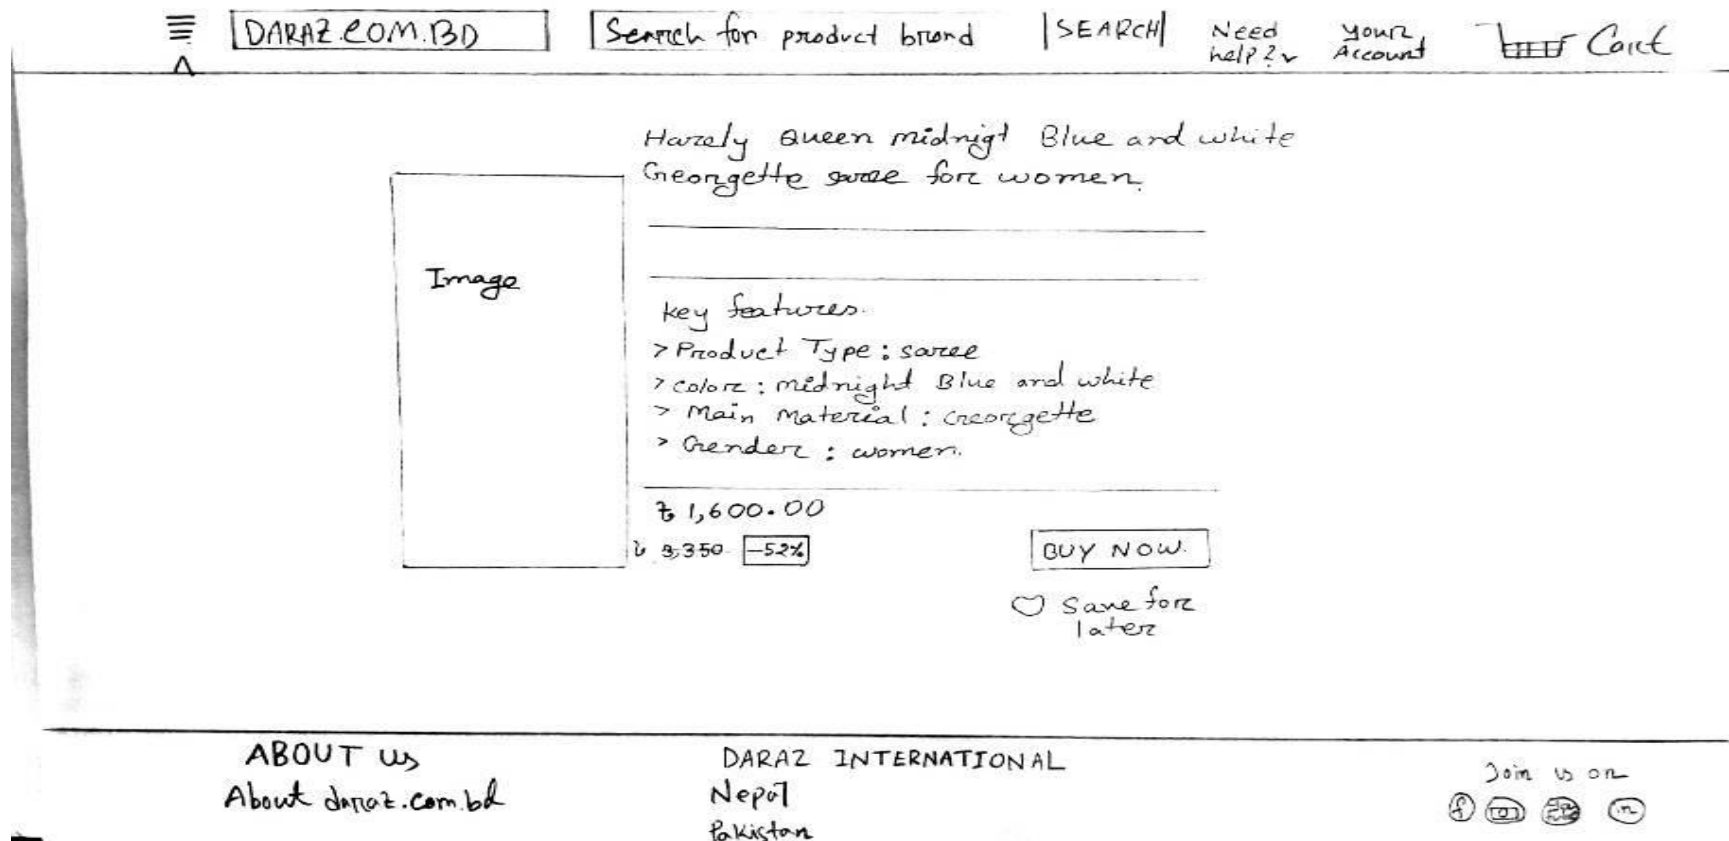 DARAZ.COM.BD
Search for product brand
SEARCH
Need
help?
Your
Account
Cart
Harely Queen midnigt Blue and white
Georgette saree for women.
Image
Key features.
> Product Type : saree
> Color : midnight Blue and white
> Main Material : Georgette
> Gender : women.
৳ 1,600.00
৳ 3,350 -52%
BUY NOW.
Save for
later
ABOUT Us
About daraz.com.bd
DARAZ INTERNATIONAL
Nepal
Pakistan
Join us on
f
in